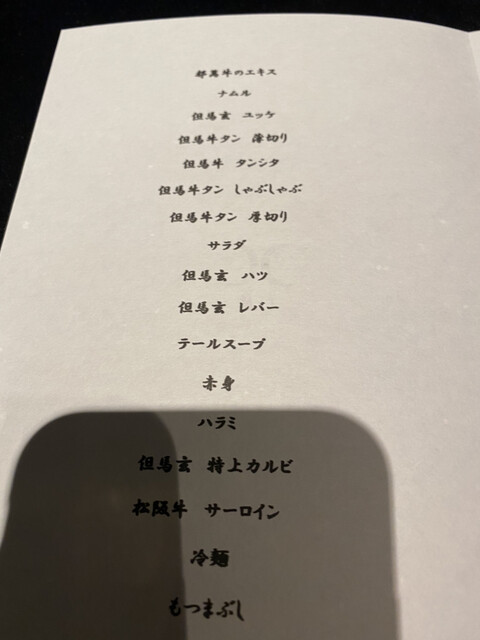 都萬牛のエキス
ナムル
但馬玄 ユッケ
但馬牛タン 薄切り
但馬牛 タンシタ
但馬牛タン しゃぶしゃぶ
但馬牛タン 厚切り
サラダ
但馬玄 ハツ
但馬玄 レバー
テールスープ
赤身
ハラミ
但馬玄 特上カルビ
松阪牛 サーロイン
冷麺
もつまぶし